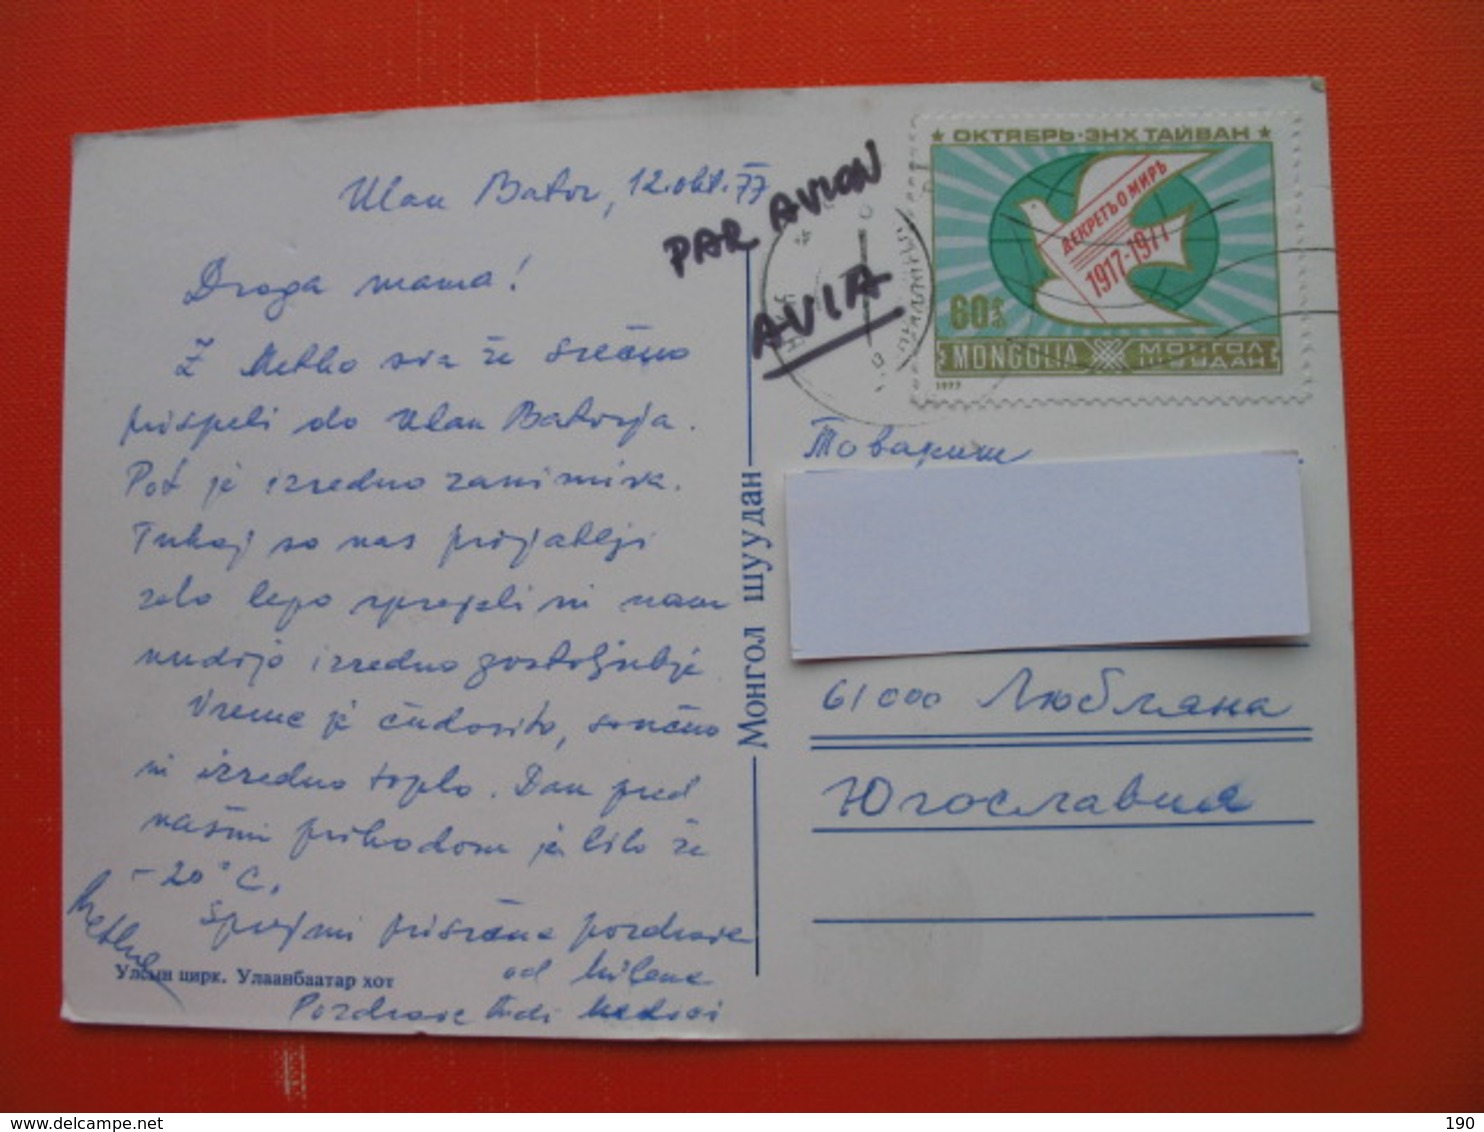 Ulan Bator, 12.okt.77
PAR AVION
AVIA
★ ОКТЯБРЬ·ЭНХ ТАЙВАН ★
ДЕКРЕТЪ О МИРѢ
1917-1977
60
MONGOLIA МОНГОЛ ШУУДАН
1977
Draga mama!
Z Metko sva že srečno
prispeli do Ulan Batorja.
Pot je izredno zanimiva.
Tukaj so nas prijatelji
zelo lepo sprejeli in nam
nudijo izredno gostoljubje.
Vreme je čudovito, sončno
in izredno toplo. Dan pred
našim prihodom je bilo že
-20°C.
Sprejmi prisrčne pozdrave
od Milene
Pozdrave tudi
Metka
Улсын цирк. Улаанбаатар хот
Монгол шуудан
Товариш
61000 Любляна
Югославия
delcampe.net
the_seller
190